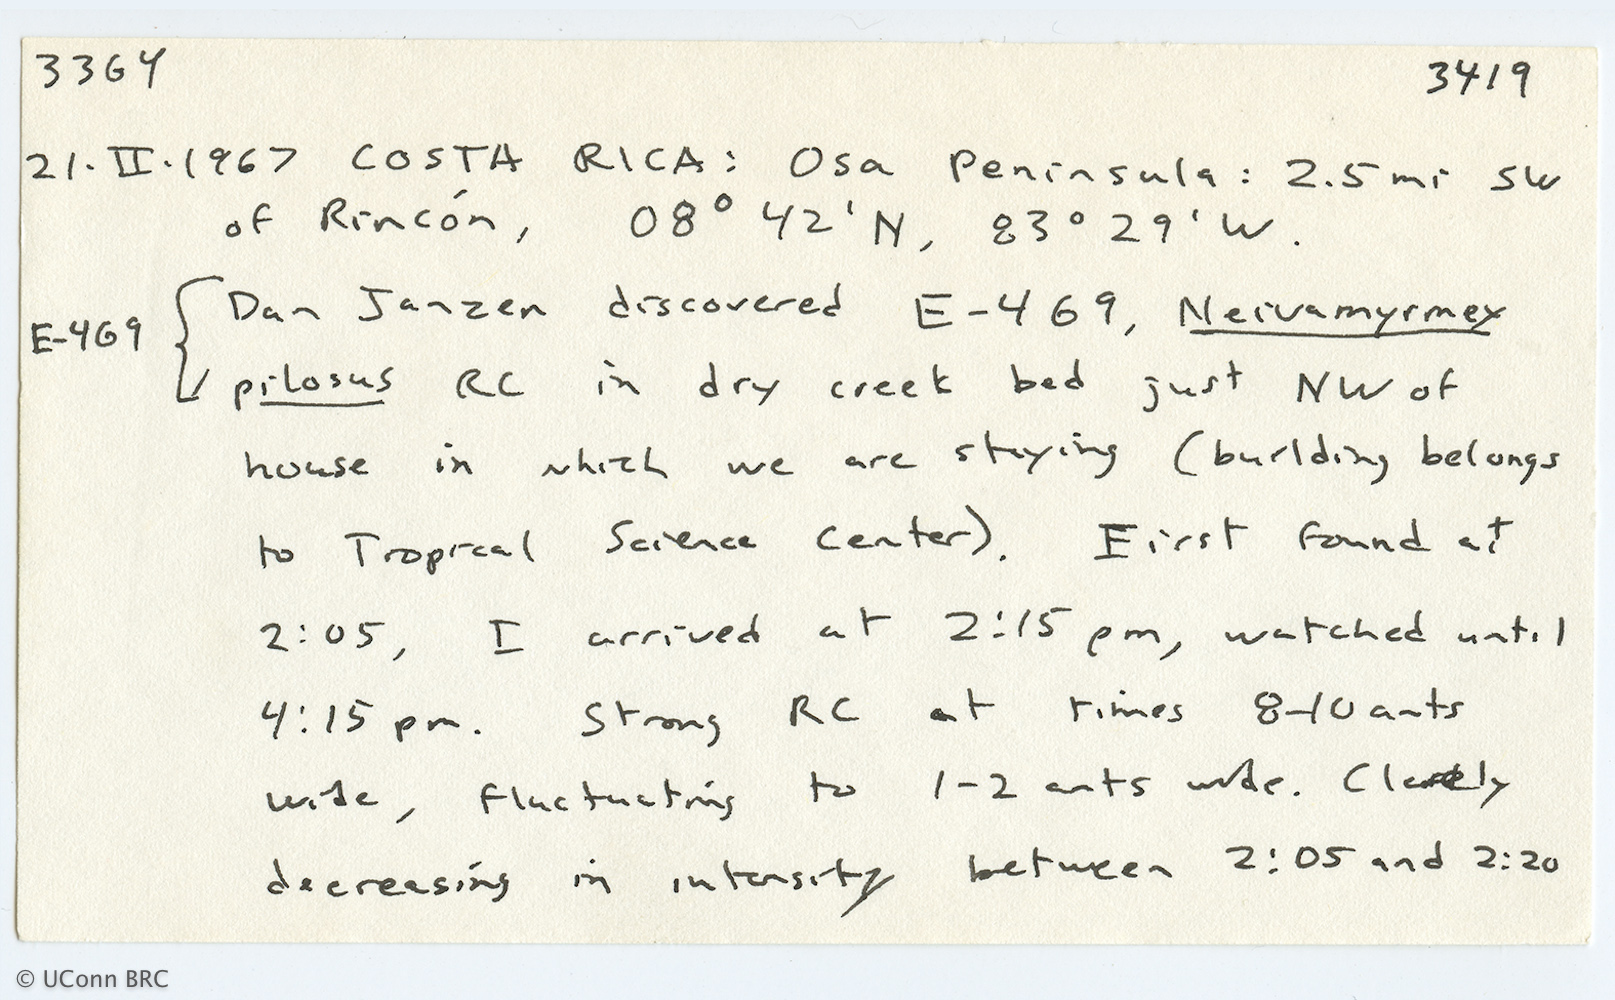 3364
3419
21.II.1967 COSTA RICA: Osa Peninsula: 2.5 mi SW
of Rincón, 08° 42' N, 83° 29' W.
E-469
Dan Janzen discovered E-469, Neivamyrmex
pilosus RC in dry creek bed just NW of
house in which we are staying (building belongs
to Tropical Science Center). First found at
2:05, I arrived at 2:15 pm, watched until
4:15 pm. Strong RC at times 8-10 ants
wide, fluctuating to 1-2 ants wide. Clearly
decreasing in intensity between 2:05 and 2:20
© UConn BRC